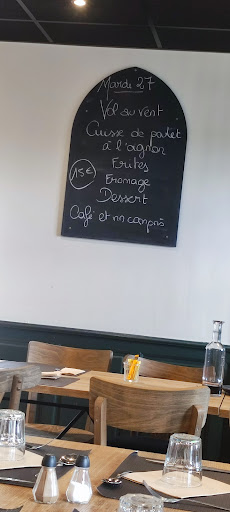 Mardi 27
Vol au vent
Cuisse de poulet
à l'oignon
Frites
15€
Fromage
Dessert
Café et vin compris